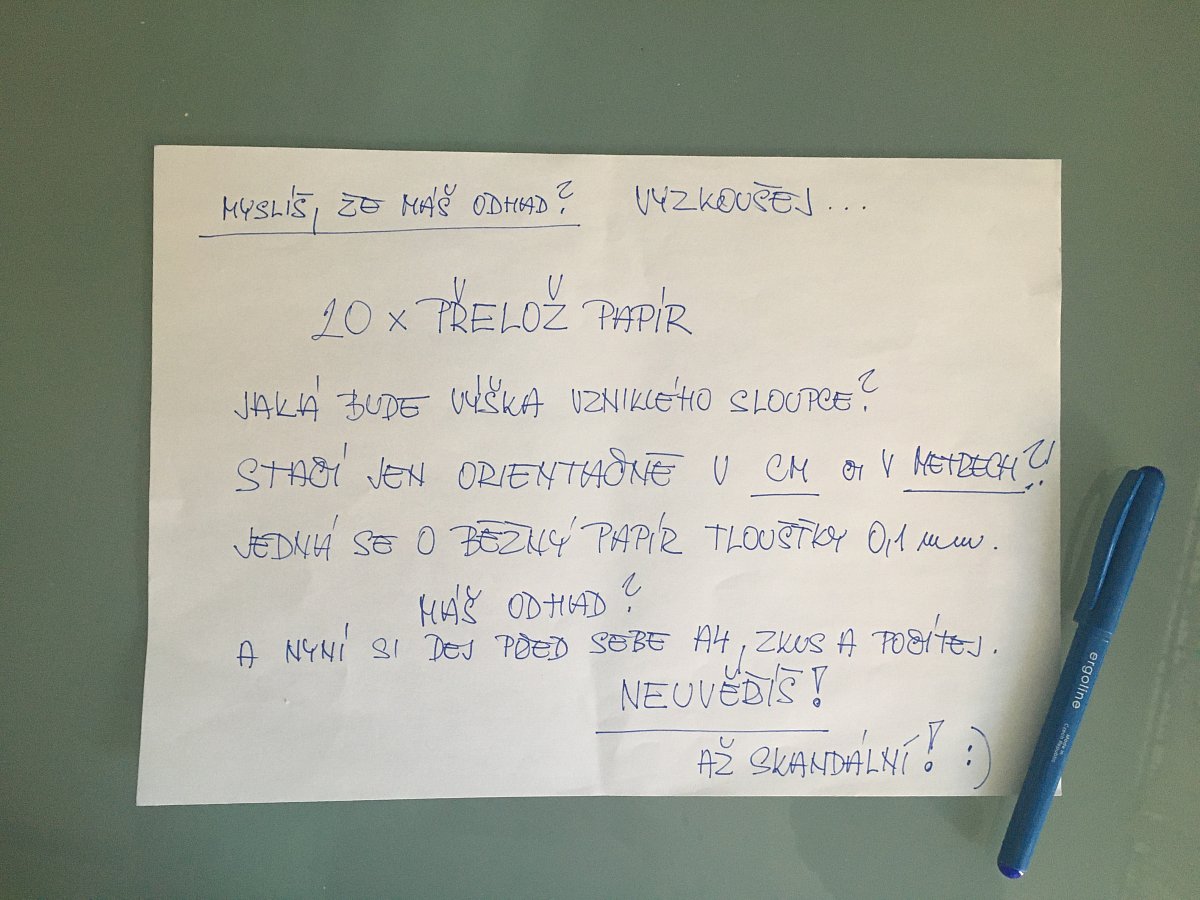 MYSLÍŠ, ŽE MÁŠ ODHAD? VYZKOUŠEJ...
20 x PŘELOŽ PAPÍR
JAKÁ BUDE VÝŠKA VZNIKLÉHO SLOUPCE?
STAČÍ JEN ORIENTAČNĚ V CM ČI V METRECH?!
JEDNÁ SE O BĚŽNÝ PAPÍR TLOUŠŤKY 0,1 mm.
MÁŠ ODHAD?
A NYNÍ SI DEJ PŘED SEBE A4, ZKUS A POČÍTEJ.
NEUVĚŘÍŠ!
AŽ SKANDÁLNÍ! :)
ergoline
Made in
Czech Republic